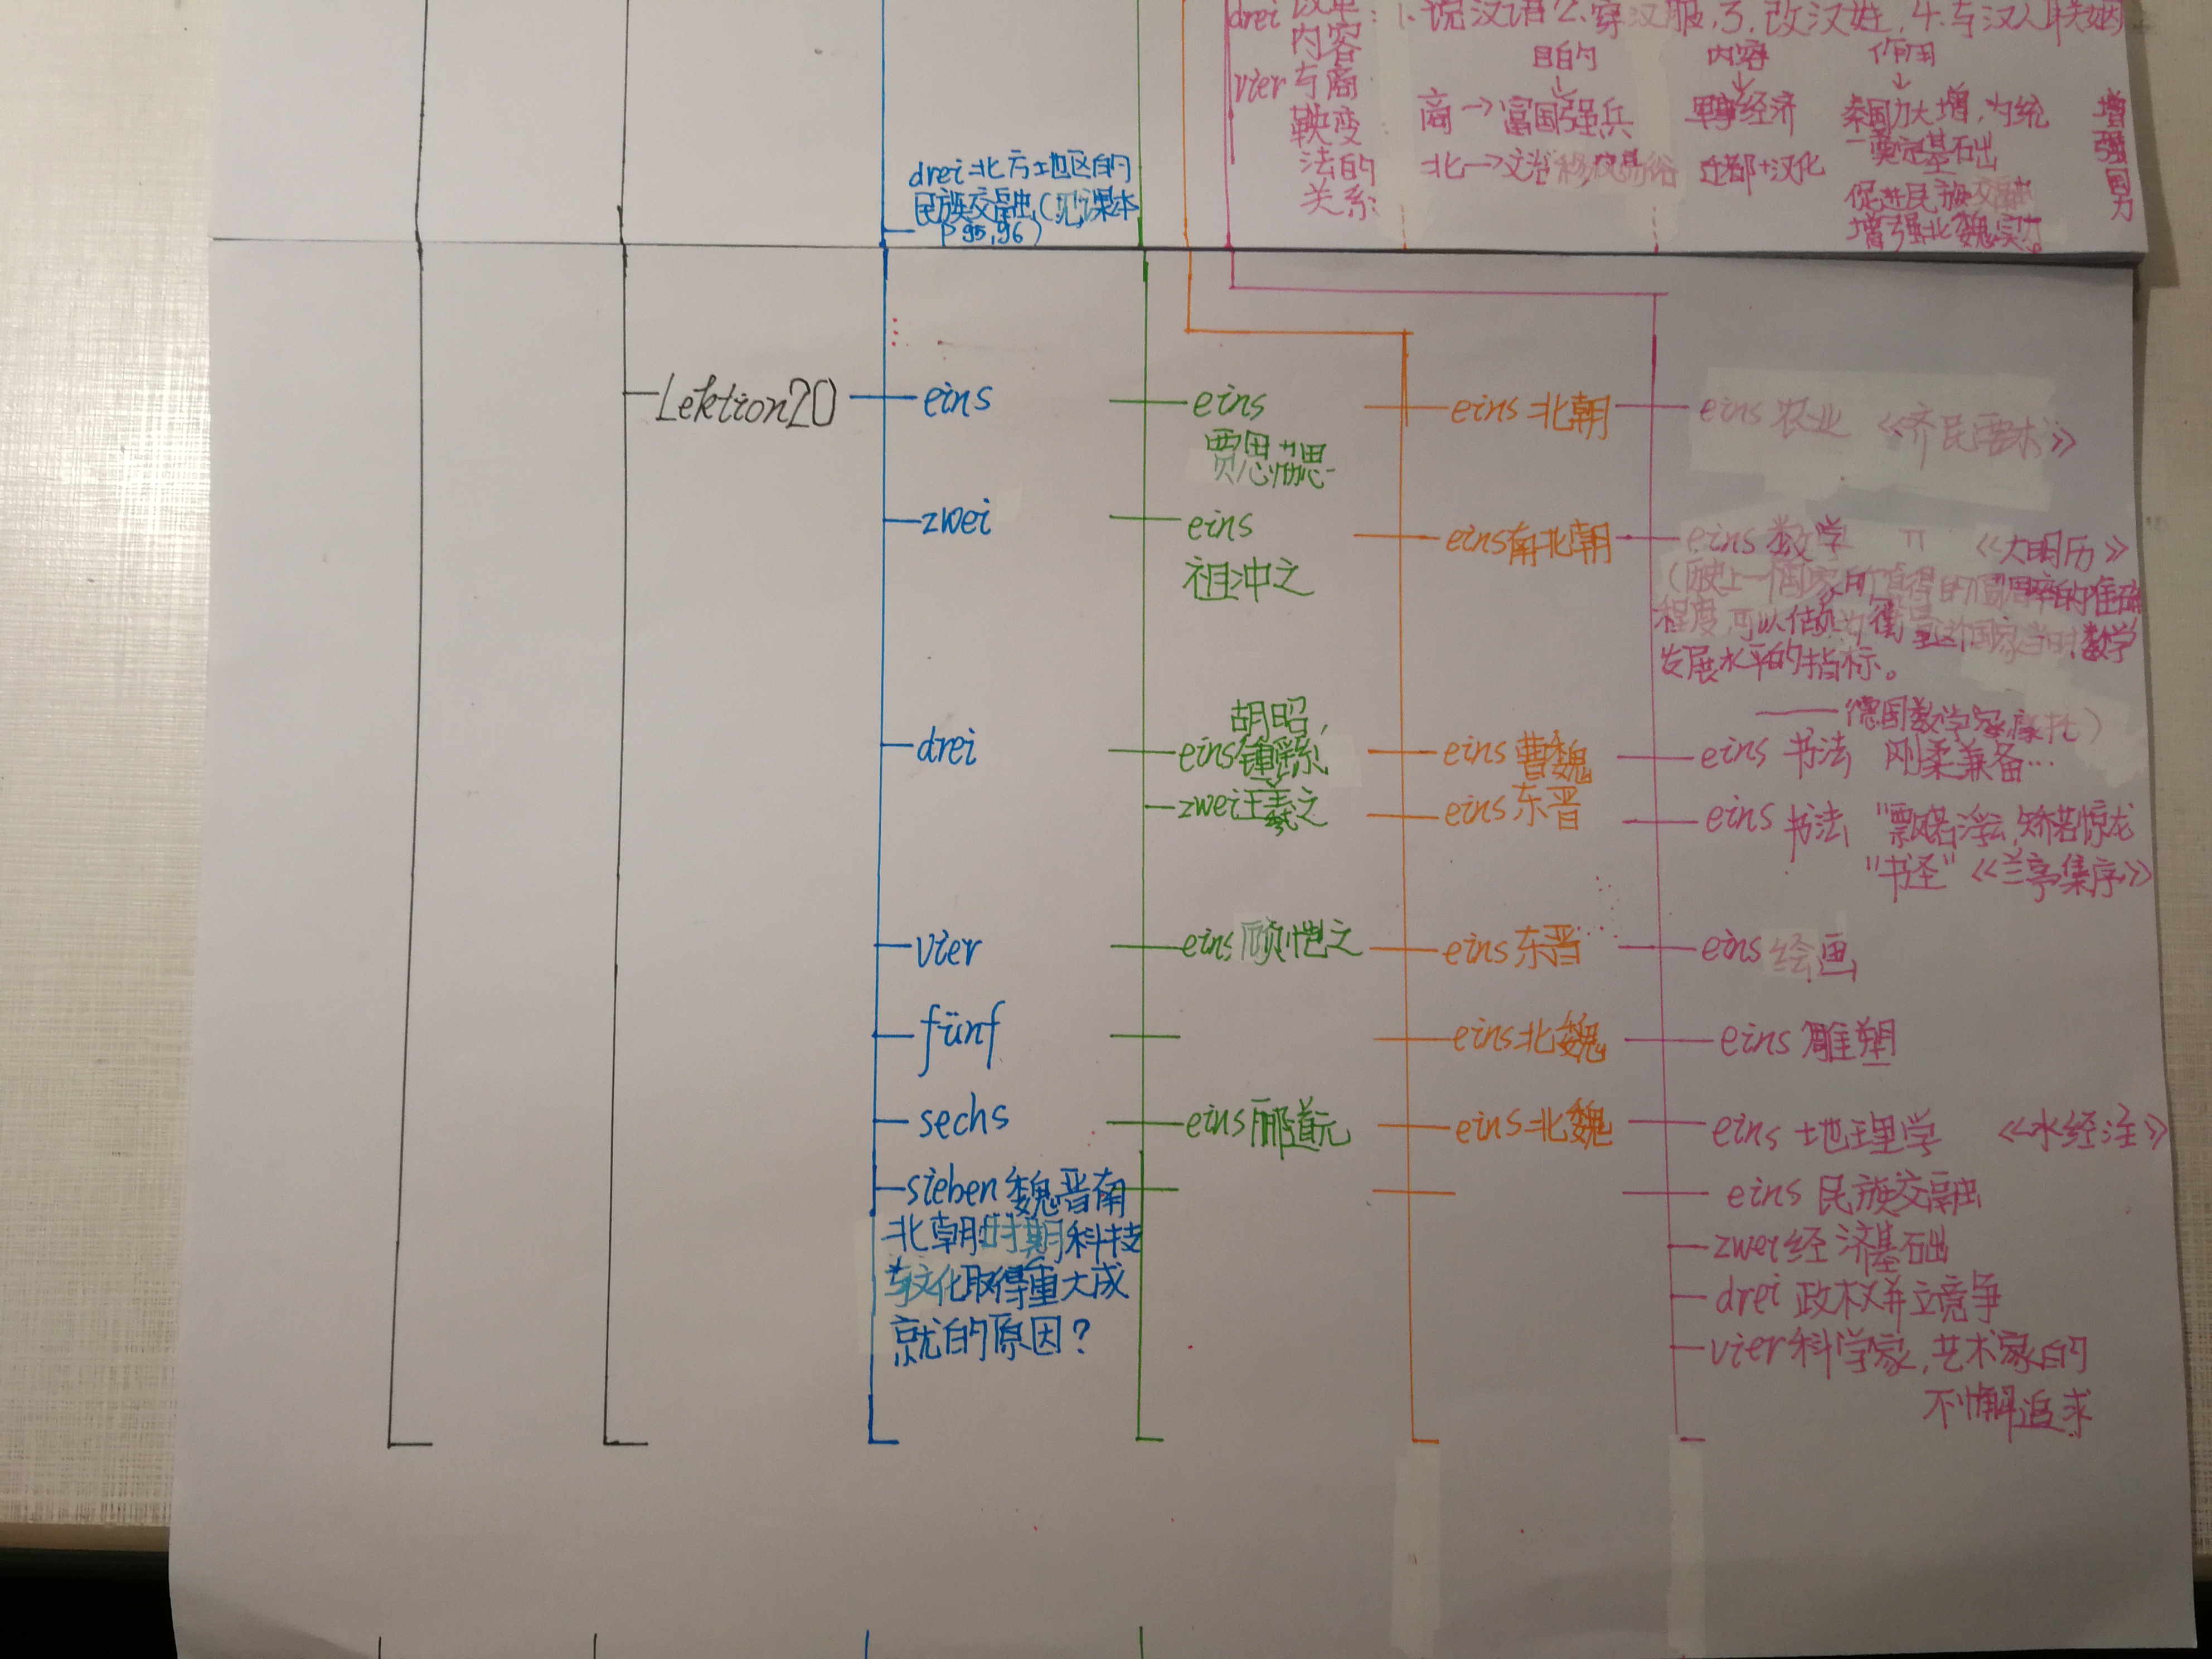 drei 改革: 1.说汉语 2.穿汉服, 3.改汉姓, 4.与汉人联姻
内容
目的 内容 作用
vier 与商
鞅变
法的
关系:
商→富国强兵 军事经济 秦国力大增,为统
一奠定基础
北→文治移风易俗 迁都+汉化
促进民族交融
增强北魏实力。
增
强
国
力
drei 北方地区的
民族交融(见课本
P95,96)
Lektion20 eins eins eins 北朝 eins 农业 《齐民要术》
贾思勰
zwei eins eins南北朝 eins 数学 π 《大明历》
祖冲之
(历史上一个国家所值得的圆周率的准确
程度,可以做为衡量这个国家当时数学
发展水平的指标。
——德国数学家康托)
胡昭,
drei eins 锺繇 eins 曹魏 eins 书法 刚柔兼备…
zwei王羲之 eins 东晋 eins 书法 "飘若浮云,矫若惊龙
"书圣" 《兰亭集序》
vier eins 顾恺之 eins 东晋 eins 绘画
fünf eins 北魏 eins 雕塑
sechs eins 郦道元 eins 北魏 eins 地理学 《水经注》
sieben 魏晋南
北朝时期科技
与文化取得重大成
就的原因?
eins 民族交融
zwei 经济基础
drei 政权并立竞争
vier 科学家,艺术家的
不懈追求